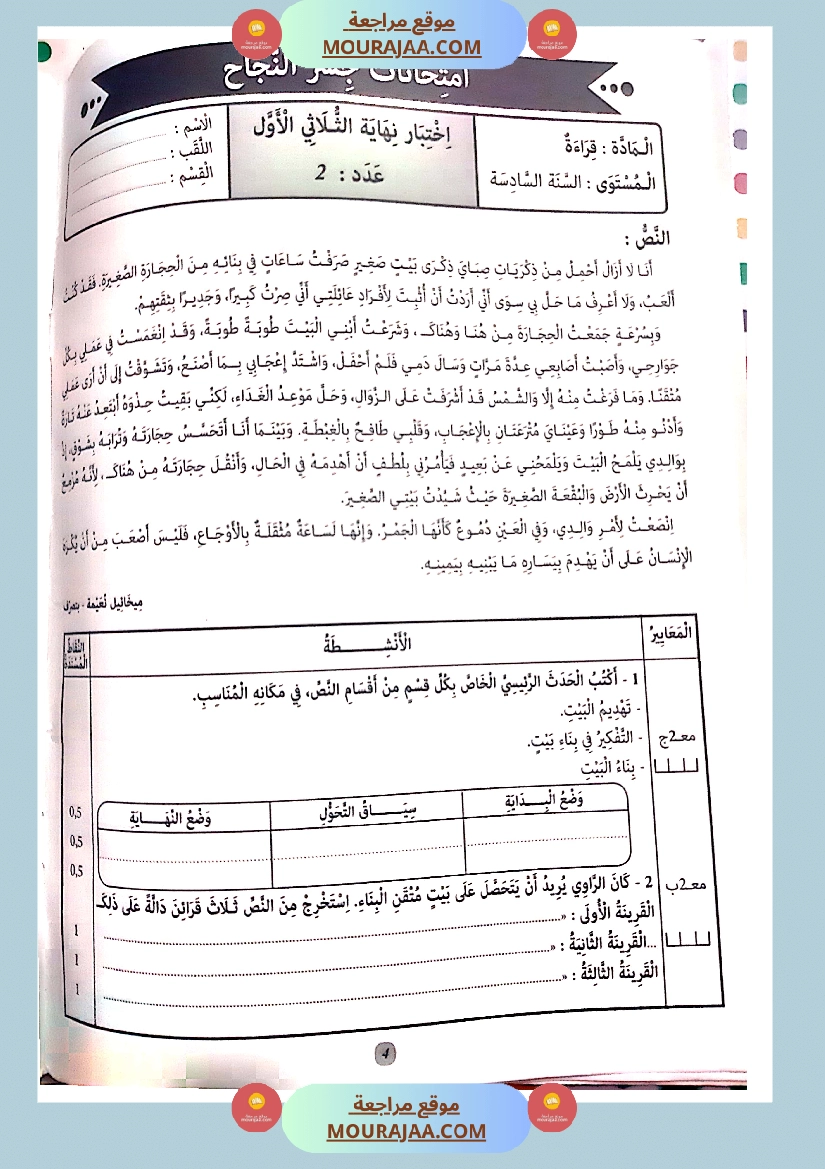 موقع مراجعة
MOURAJAA.COM
اِمْتِحَانَات جِسْر النَّجَاح
الْمَادَّة : قِرَاءَةٌ
الْمُسْتَوَى : السَّنَة السَّادِسَة
اِخْتِبَار نِهَايَة الثُّلَاثِي الْأَوَّل
عَدَد : 2
الْاسْم :
اللَّقَب :
الْقِسْم :
النَّصُّ :
أَنَا لَا أَزَالُ أَحْمِلُ مِنْ ذِكْرَيَاتِ صِبَايَ ذِكْرَى بَيْتٍ صَغِيرٍ صَرَفْتُ سَاعَاتٍ فِي بِنَائِهِ مِنَ الْحِجَارَةِ الصَّغِيرَةِ. فَقَدْ كُنْتُ
أَلْعَبُ، وَلَا أَعْرِفُ مَا حَلَّ بِي سِوَى أَنِّي أَرَدْتُ أَنْ أُثْبِتَ لِأَفْرَادِ عَائِلَتِي أَنِّي صِرْتُ كَبِيرًا، وَجَدِيرًا بِثِقَتِهِمْ.
وَبِسُرْعَةٍ جَمَعْتُ الْحِجَارَةَ مِنْ هُنَا وَهُنَاكَ ، وَشَرَعْتُ أَبْنِي الْبَيْتَ طُوبَةً طُوبَةً، وَقَدْ اِنْغَمَسْتُ فِي عَمَلِي بِكُلِّ
جَوَارِحِي، وَأَصَبْتُ أَصَابِعِي عِدَّةَ مَرَّاتٍ وَسَالَ دَمِي فَلَمْ أَحْفَلْ، وَاشْتَدَّ إِعْجَابِي بِمَا أَصْنَعُ، وَتَشَوَّقْتُ إِلَى أَنْ أَرَى عَمَلِي
مُتْقَنًا. وَمَا فَرَغْتُ مِنْهُ إِلَّا وَالشَّمْسُ قَدْ أَشْرَفَتْ عَلَى الزَّوَالِ، وَحَلَّ مَوْعِدُ الْغَدَاءِ، لَكِنِّي بَقِيتُ حِذْوَهُ أَبْتَعِدُ عَنْهُ تَارَةً
وَأَدْنُو مِنْهُ طَوْرًا وَعَيْنَايَ مُتْرَعَتَانِ بِالْإِعْجَابِ، وَقَلْبِي طَافِحٌ بِالْغِبْطَةِ. وَبَيْنَمَا أَنَا أَتَحَسَّسُ حِجَارَتَهُ وَتُرَابَهُ بِشَوْقٍ، إِذْ
بِوَالِدِي يَلْمَحُ الْبَيْتَ وَيَلْمَحُنِي عَنْ بَعِيدٍ فَيَأْمُرُنِي بِلُطْفٍ أَنْ أَهْدِمَهُ فِي الْحَالِ، وَأَنْقُلَ حِجَارَتَهُ مِنْ هُنَاكَ ، لِأَنَّهُ مُزْمِعٌ
أَنْ يَحْرِثَ الْأَرْضَ وَالْبُقْعَةَ الصَّغِيرَةَ حَيْثُ شَيَّدْتُ بَيْتِي الصَّغِيرَ.
اِنْصَعْتُ لِأَمْرِ وَالِدِي، وَفِي الْعَيْنِ دُمُوعٌ كَأَنَّهَا الْجَمْرُ. وَإِنَّهَا لَسَاعَةٌ مُثْقَلَةٌ بِالْأَوْجَاعِ، فَلَيْسَ أَصْعَبَ مِنْ أَنْ يُكْرَهَ
الْإِنْسَانُ عَلَى أَنْ يَهْدِمَ بِيَسَارِهِ مَا يَبْنِيهِ بِيَمِينِهِ.
مِيخَائِيل نُعَيْمَة - بتصرّف
الْمَعَايِيرُ
الْأَنْشِطَةُ
النِّقَاطُ الْمُسْنَدَةُ
1 - أَكْتُبُ الْحَدَثَ الرَّئِيسِيَّ الْخَاصَّ بِكُلِّ قِسْمٍ مِنْ أَقْسَامِ النَّصِّ، فِي مَكَانِهِ الْمُنَاسِبِ.
- تَهْدِيمُ الْبَيْتِ.
- التَّفْكِيرُ فِي بِنَاءِ بَيْتٍ.
- بِنَاءُ الْبَيْتِ
معـ2ج
وَضْعُ الْبِدَايَةِ
سِيَاقُ التَّحَوُّلِ
وَضْعُ النِّهَايَةِ
0,5
0,5
0,5
معـ2ب
2 - كَانَ الرَّاوِي يُرِيدُ أَنْ يَتَحَصَّلَ عَلَى بَيْتٍ مُتْقَنِ الْبِنَاءِ. اِسْتَخْرِجْ مِنَ النَّصِّ ثَلَاثَ قَرَائِنَ دَالَّةً عَلَى ذَلِكَ
الْقَرِينَةُ الْأُولَى : «
1
...الْقَرِينَةُ الثَّانِيَةُ : «
1
الْقَرِينَةُ الثَّالِثَةُ : «
1
4
موقع مراجعة
MOURAJAA.COM